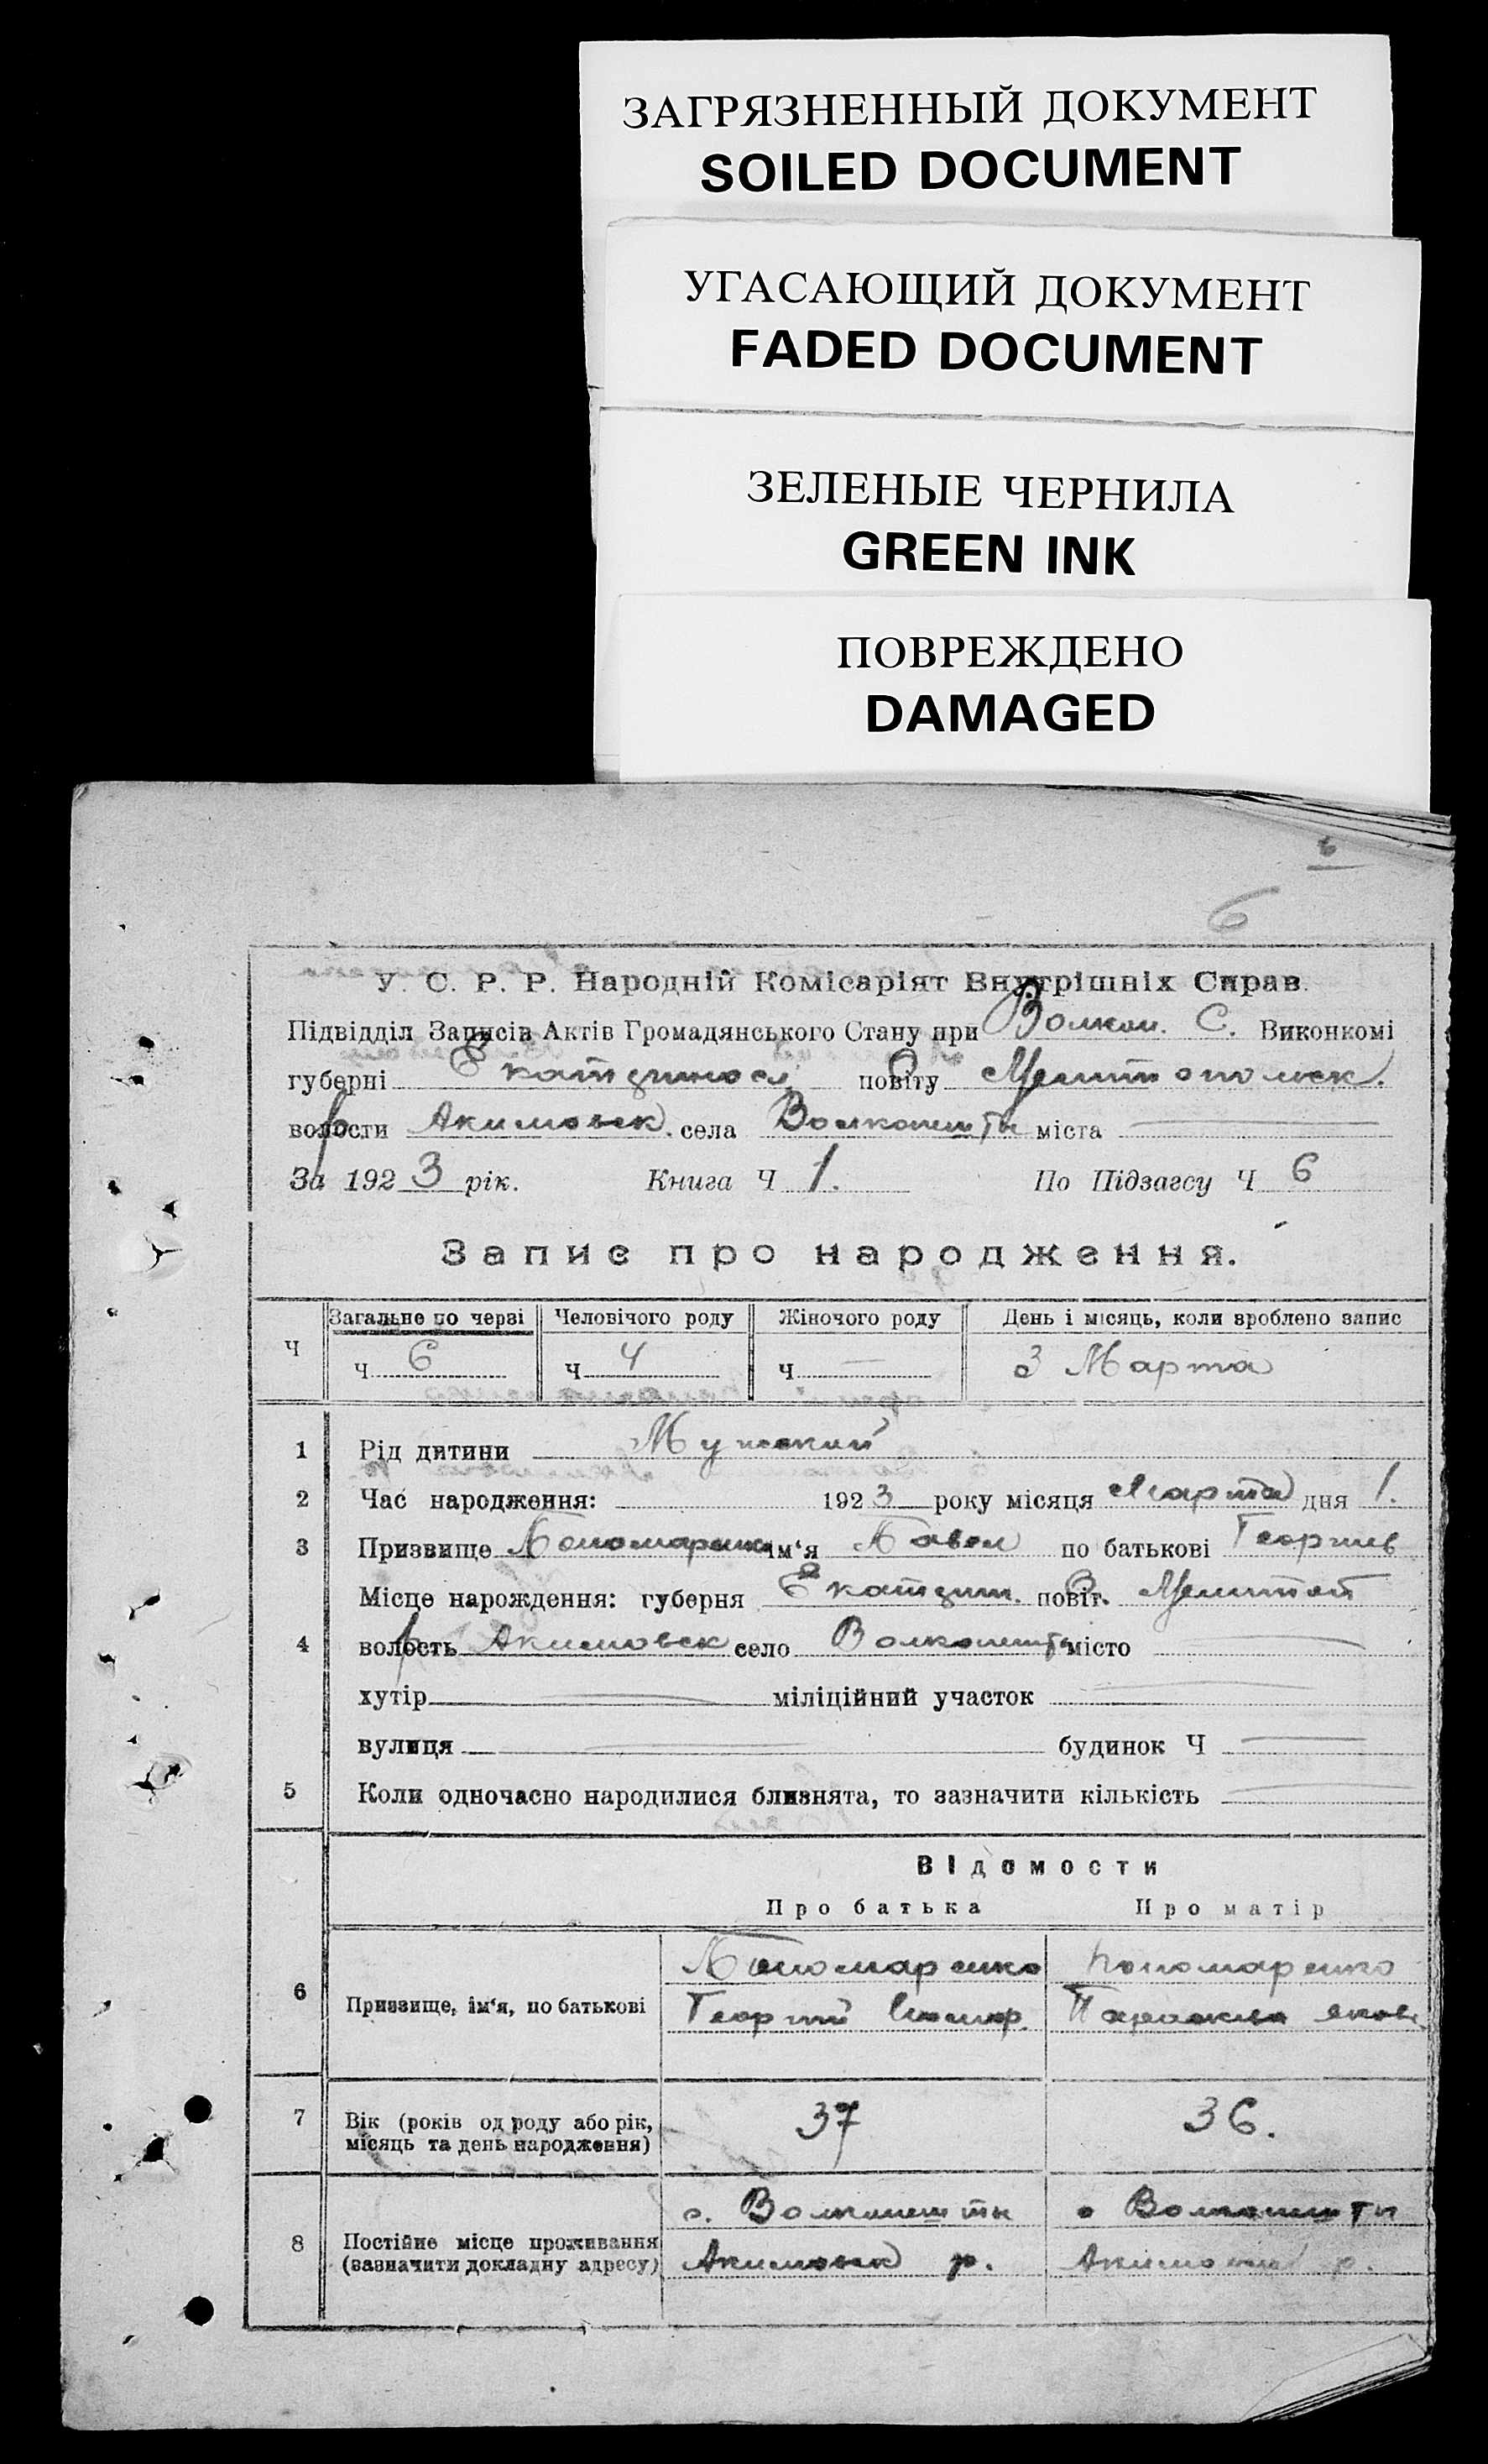 ЗАГРЯЗНЕННЫЙ ДОКУМЕНТ
SOILED DOCUMENT
УГАСАЮЩИЙ ДОКУМЕНТ
FADED DOCUMENT
ЗЕЛЕНЫЕ ЧЕРНИЛА
GREEN INK
ПОВРЕЖДЕНО
DAMAGED
6
6
У. С. Р. Р. Народній Комісаріят Внутрішніх Справ.
Підвідділ Записів Актів Громадянського Стану при Волкон. С. Виконкомі
губерні Екатериносл. повіту О Мелитопольск.
волости р Акимовск. села Волконешты міста
За 1923 рік. Книга Ч 1. По Підзагсу Ч 6
Запис про народження.
Загальне по черзі Человічого роду Жіночого роду День і місяць, коли вроблено запис
Ч Ч 6 Ч 4 Ч — 3 Марта
1 Рід дитини Мужской
2 Час народження: 1923 року місяця Марта дня 1.
3 Призвище Пономаренко ім'я Павел по батькові Георгиев
Місце нарождення: губерня Екатерин. повіт. О Мелитоп
4 волость р Акимовск село Волконешты місто
хутір міліційний участок
вулиця будинок Ч
5 Коли одночасно народилися близнята, то зазначити кількість
Відомости
Про батька Про матір
Пономаренко Пономаренко
6 Призвище, ім'я, по батькові Георгий Параскева Яковл.
7 Вік (років од роду або рік, 37 36.
місяць та день народження)
с. Волконешты с Волконешты
8 Постійне місце проживання
(зазначити докладну адресу) Акимовск р. Акимовск р.